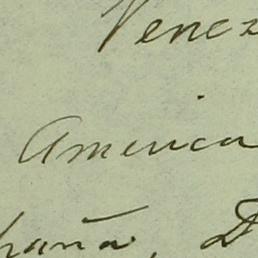 Venez
America
paña, D